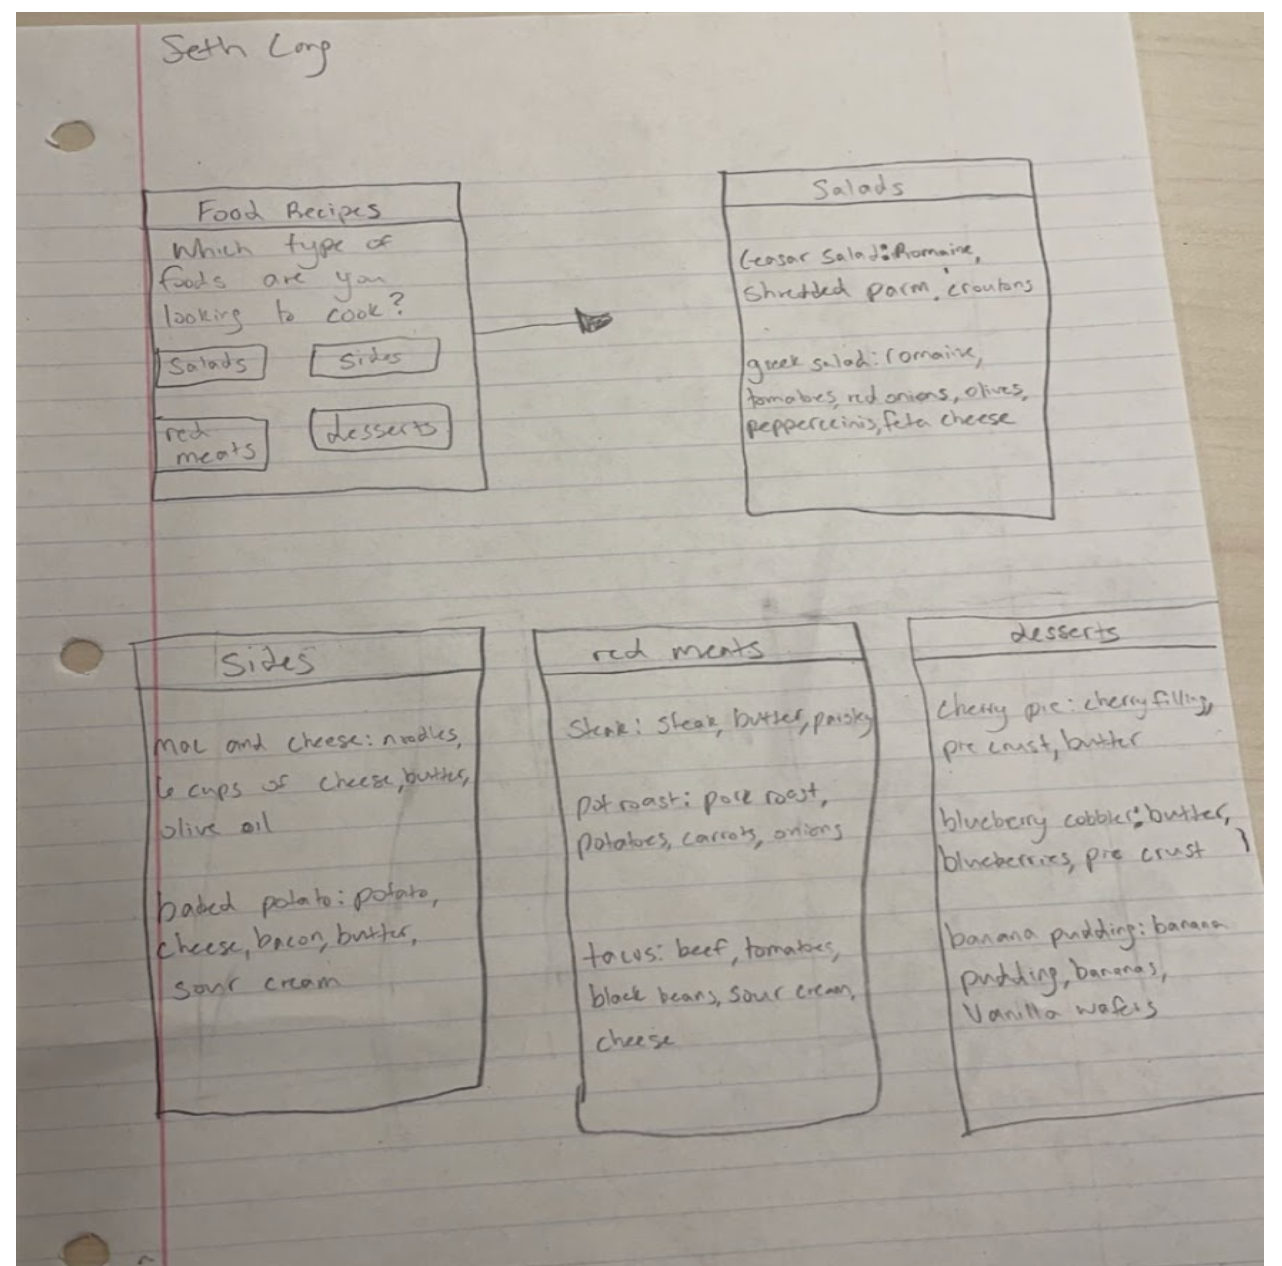 Seth Long
Food Recipes
Which type of
foods are you
looking to cook?
Salads
Sides
red
meats
desserts
Salads
Ceasar Salad: Romaine,
Shredded parm, croutons
greek salad: romaine,
tomatoes, red onions, olives,
pepperceinis, feta cheese
Sides
mac and cheese: noodles,
6 cups of cheese, butter,
olive oil
baked potato: potato,
cheese, bacon, butter,
sour cream
red meats
Steak: steak, butter, parsley
pot roast: pork roast,
potatoes, carrots, onions
tacos: beef, tomatoes,
black beans, sour cream,
cheese
desserts
cherry pie: cherry filling,
pie crust, butter
blueberry cobbler: butter,
blueberries, pie crust
banana pudding: banana
pudding, bananas,
Vanilla wafers